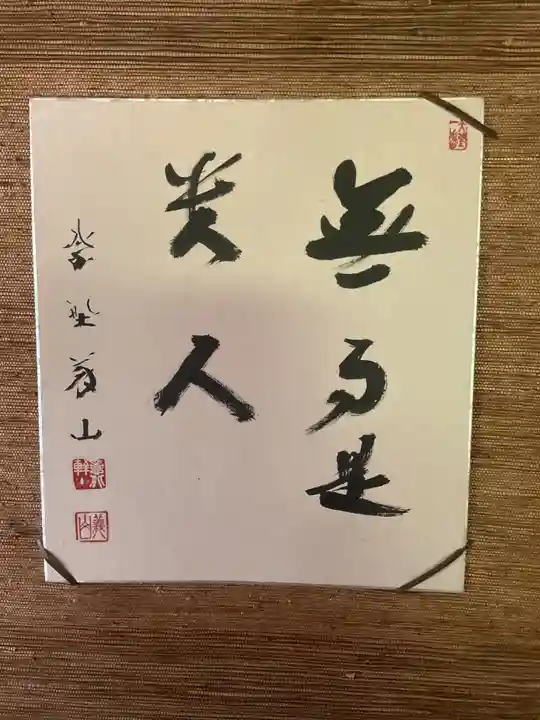 無事是
貴人
紫野義山
義山